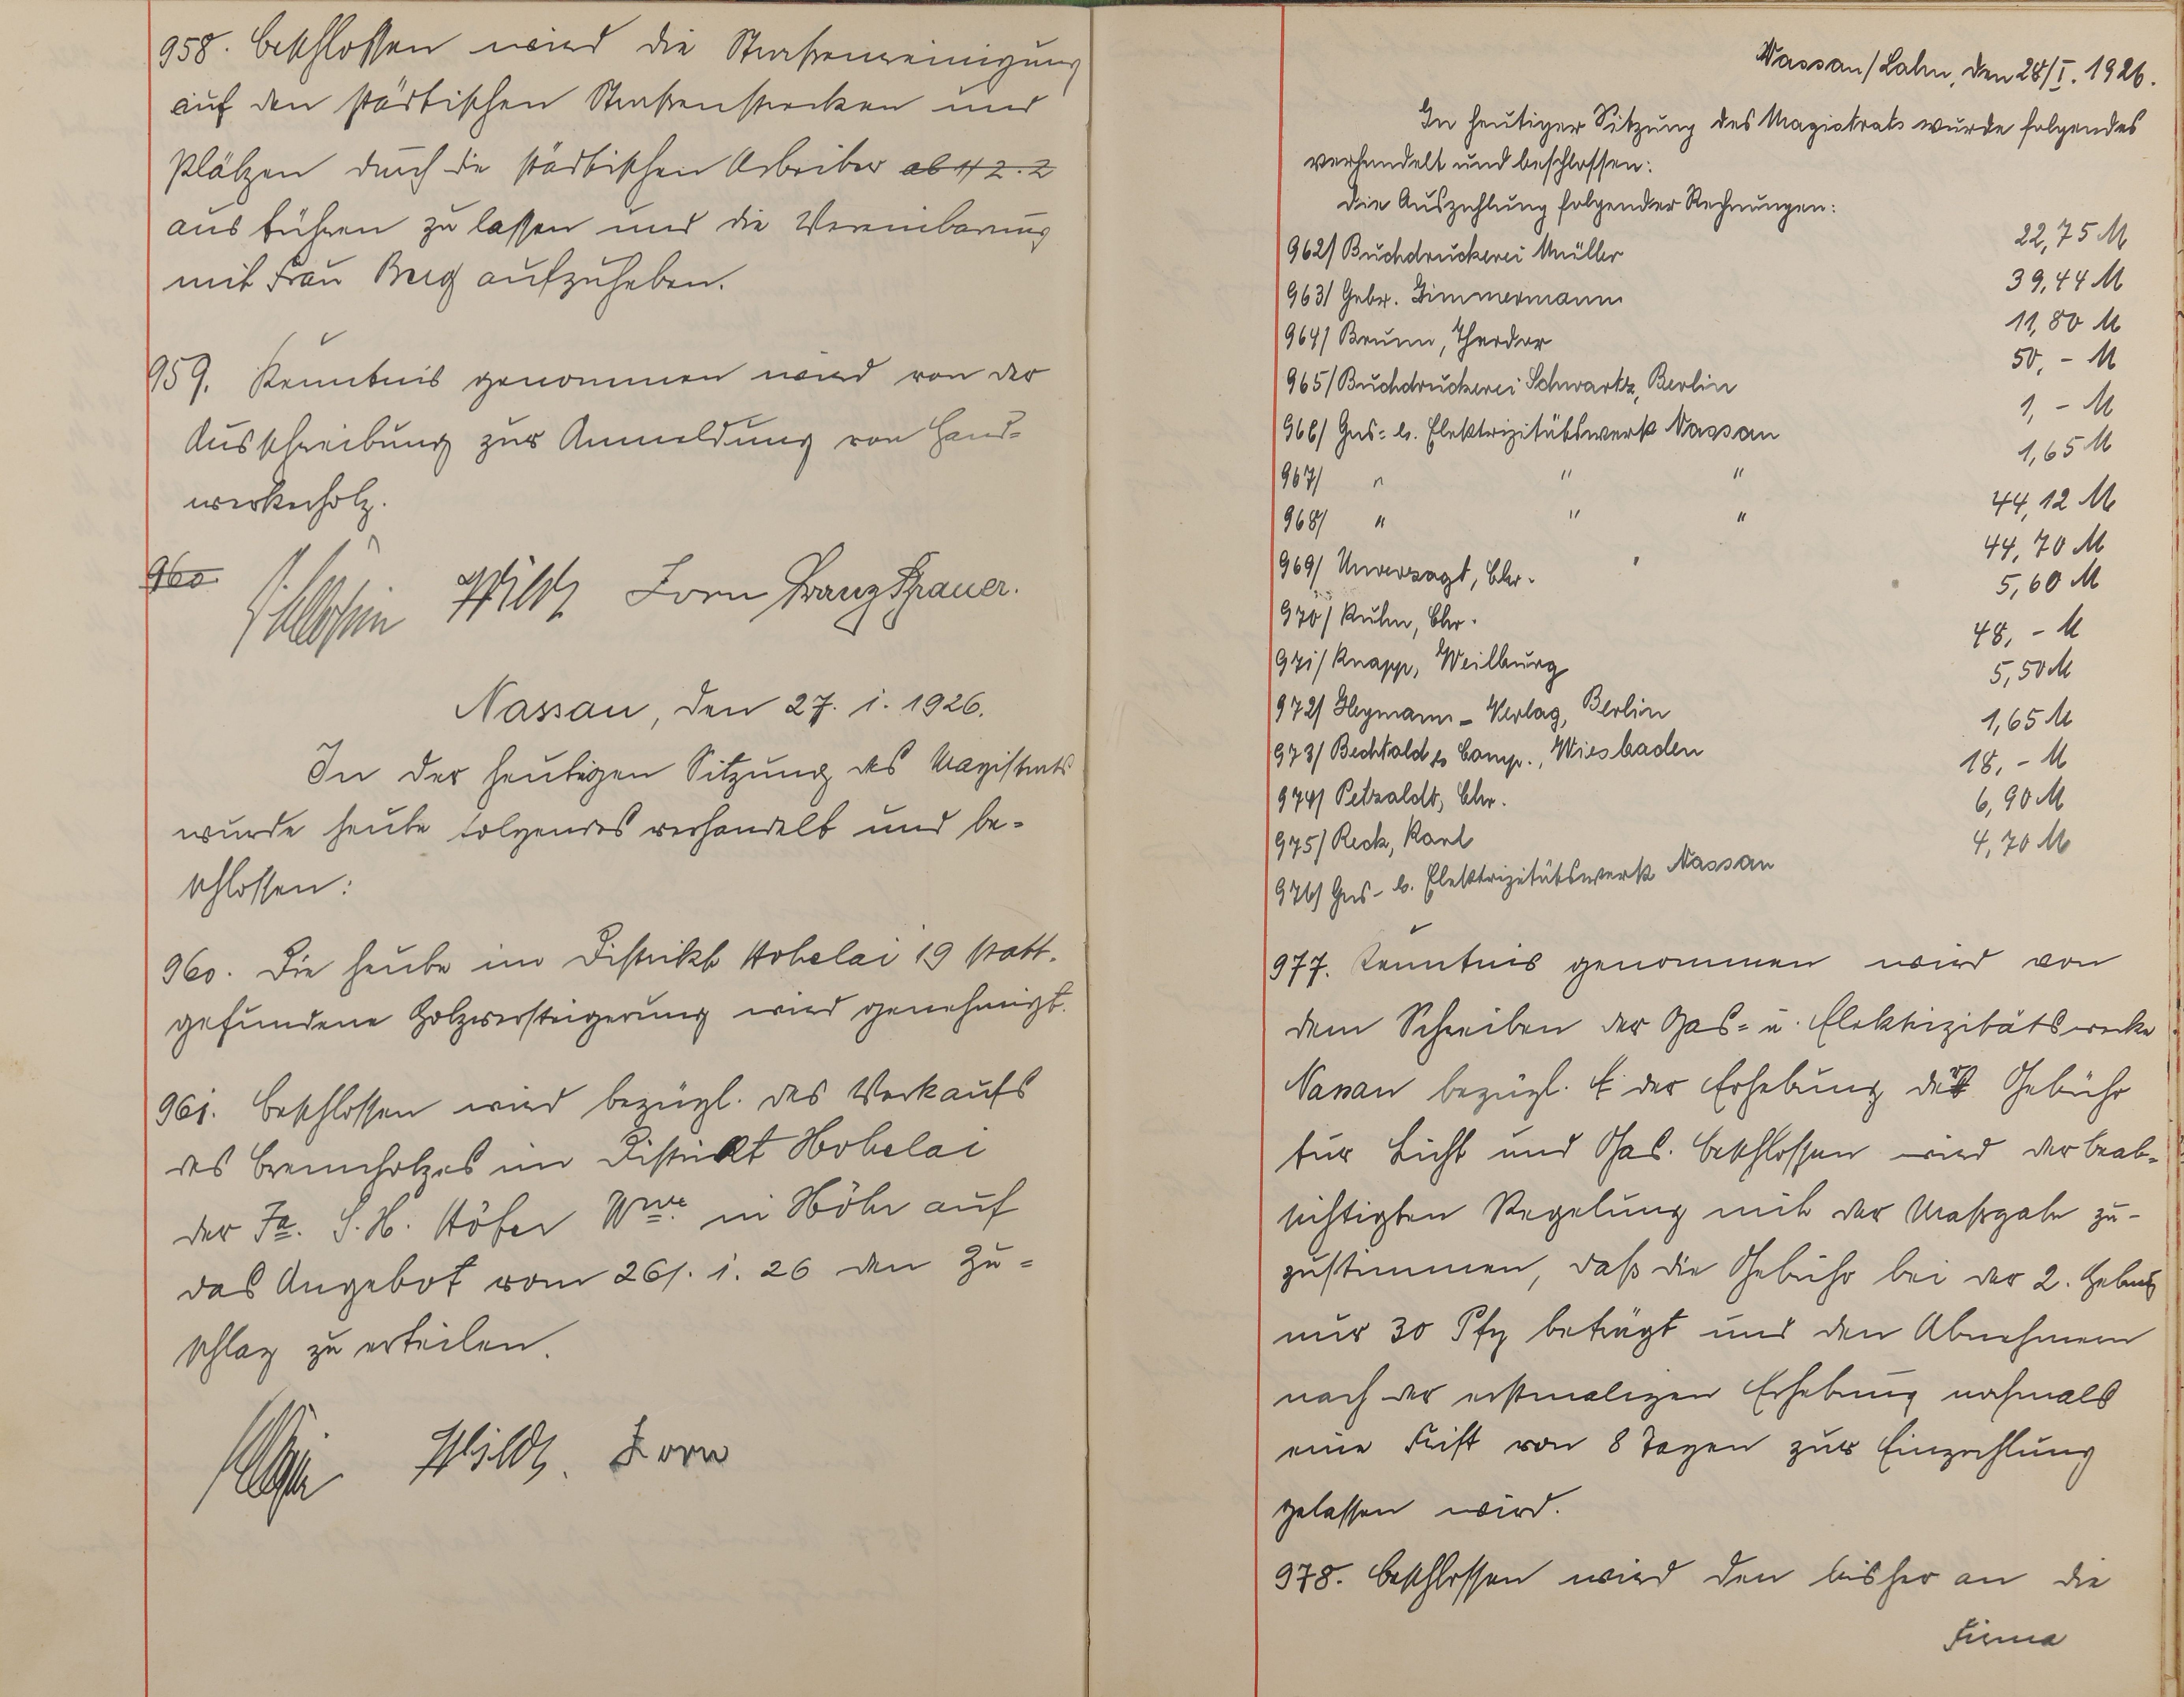 958. Beschlossen wird die Straßenreinigung
auf den städtischen Straßenstrecken und
Plätzen durch die städtischen Arbeiter ab 1/2. 2
ausführen zu lassen und die Vereinbarung
mit Frau Berg aufzuheben.
959. Kenntnis genommen wird von der
Ausschreibung zur Anmeldung von Hand=
werkerholz.
960
Wildt Zorn Franz Thrauer.
Nassau, den 27. 1. 1926.
In der heutigen Sitzung des Magistrats
wurde heute folgendes verhandelt und be=
schlossen:
960. Die heute im Distrikt Hohelai 19 statt.
gefundene Holzversteigerung wird genehmigt.
961. Beschlossen wird bezügl. des Verkaufs
des Brennholzes im Distrikt Hohelai
der Fa. S. H. Höfer Wwe. in Höhr auf
das Angebot vom 26/. 1. 26 den Zu=
schlag zu erteilen.
Wildt. Zorn
Nassau/Lahn, den 28/I. 1926.
In heutiger Sitzung des Magistrats wurde folgendes
verhandelt und beschlossen:
Die Auszahlung folgender Rechnungen:
962/ Buchdruckerei Müller 22,75 M
963/ Gebr. Zimmermann 39,44 M
964/ Braun, Theodor 11,80 M
965/ Buchdruckerei Schwartz, Berlin 50,- M
966/ Gas= u. Elektrizitätswerk Nassau 1,- M
967/ " " " 1,65 M
968/ " " " 44,12 M
969/ Unverzagt, Chr. 44,70 M
970/ Kuhn, Chr. 5,60 M
971/ Knapp, Weilburg 48,- M
972/ Heymann-Verlag, Berlin 5,50 M
973/ Bechtold & Comp., Wiesbaden 1,65 M
974/ Petzoldt, Chr. 18,- M
975/ Reck, Karl 6,90 M
976/ Gas- u. Elektrizitätswerk Nassau 4,70 M
977. Kenntnis genommen wird von
dem Schreiben der Gas= u. Elektrizitätswerke
Nassau bezügl. der Erhebung der Gebühr
für Licht und Gas. Beschlossen wird der beab-
sichtigten Regelung mit der Maßgabe zu-
zustimmen, daß die Gebühr bei der 2. Hebung
nur 30 Pfg beträgt und den Abnehmern
nach der erstmaligen Erhebung nochmals
eine Frist von 8 Tagen zur Einzahlung
gelassen wird.
978. Beschlossen wird den bisher an die
Firma